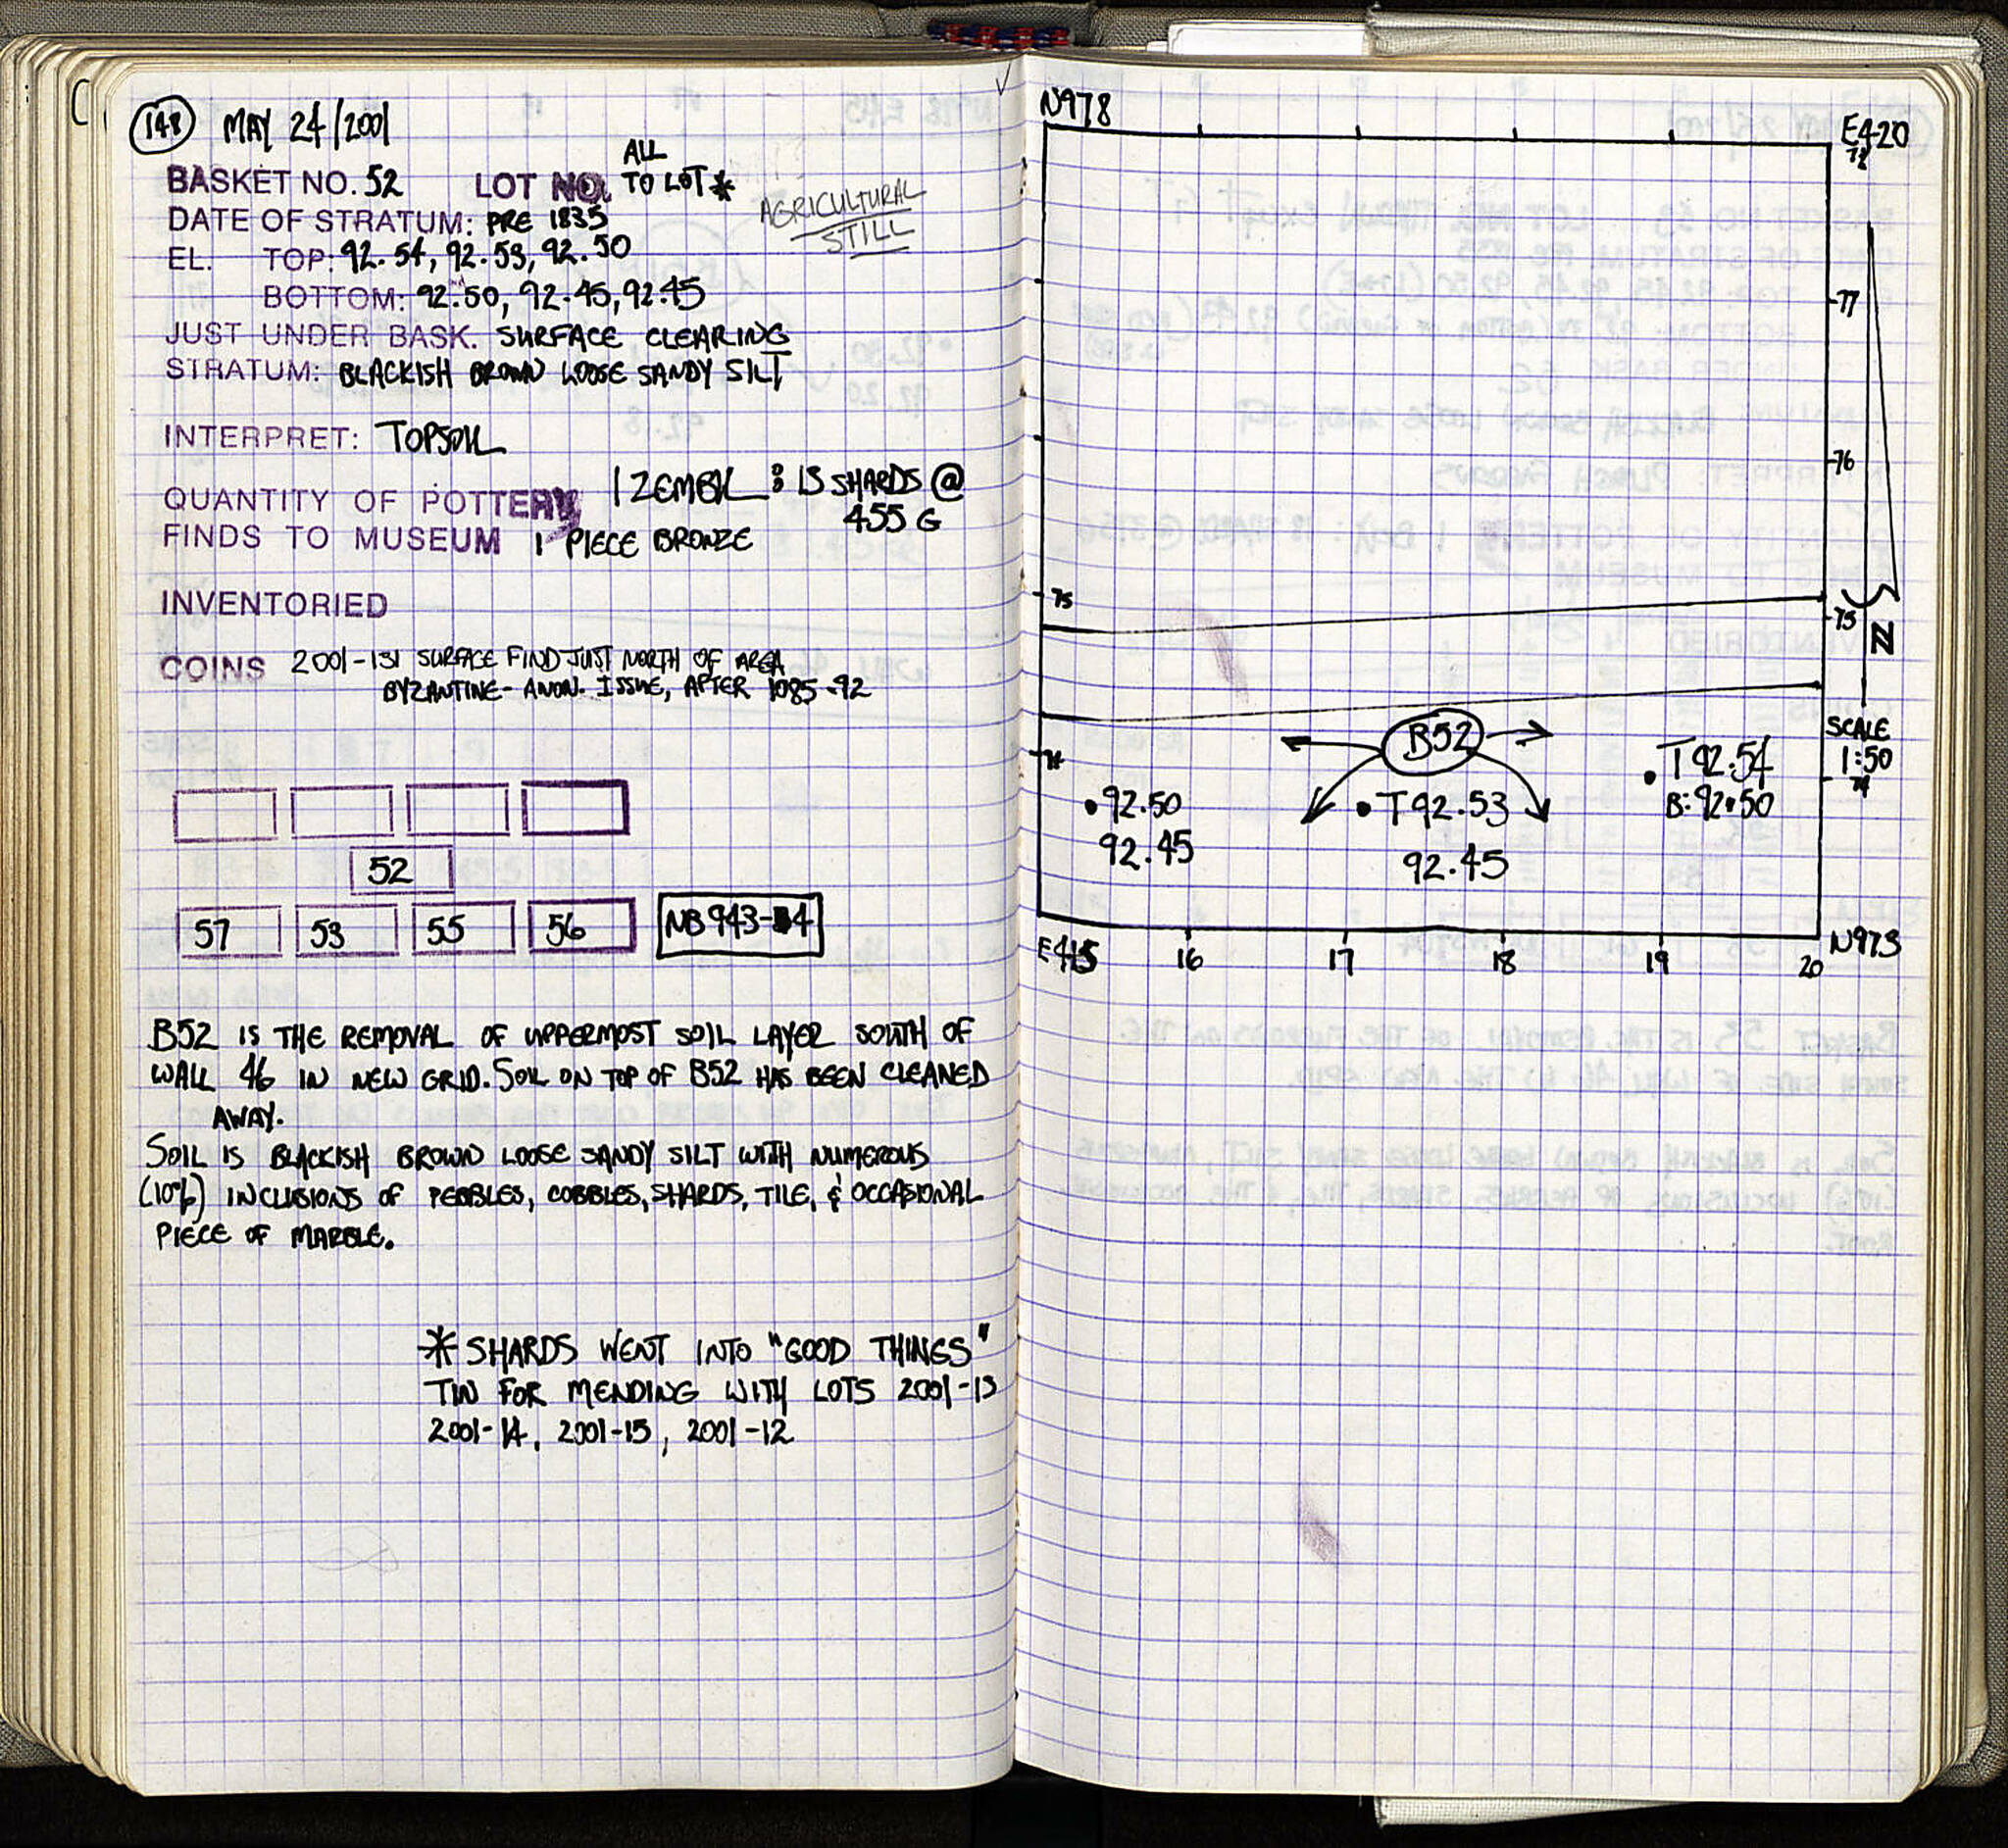 148 MAY 24/2001
BASKET NO. 52 LOT NO. ALL TO LOT *
AGRICULTURAL
STILL
DATE OF STRATUM: PRE 1835
EL. TOP: 92.54, 92.53, 92.50
BOTTOM: 92.50, 92.45, 92.45
JUST UNDER BASK. SURFACE CLEARING
STRATUM: BLACKISH BROWN LOOSE SANDY SILT
INTERPRET: TOPSOIL
QUANTITY OF POTTERY 1 ZEMBIL: 15 SHARDS @
455 G
FINDS TO MUSEUM 1 PIECE BRONZE
INVENTORIED
COINS 2001-131 SURFACE FIND JUST NORTH OF AREA
BYZANTINE- ANON. ISSUE, AFTER 1085-92
52
57 53 55 56 NB 943-
B52 IS THE REMOVAL OF UPPERMOST SOIL LAYER SOUTH OF
WALL 46 IN NEW GRID. SOIL ON TOP OF B52 HAS BEEN CLEANED
AWAY.
SOIL IS BLACKISH BROWN LOOSE SANDY SILT WITH NUMEROUS
(10%) INCLUSIONS OF PEBBLES, COBBLES, SHARDS, TILE, & OCCASIONAL
PIECE OF MARBLE.
* SHARDS WENT INTO "GOOD THINGS"
TIN FOR MENDING WITH LOTS 2001-13
2001-14, 2001-15, 2001-12
N978
E420
78
77
76
75
75
N
SCALE
1:50
74
74
B52
T 92.54
B: 92.50
.92.50
92.45
T 92.53
92.45
E415 16 17 18 19 20 N973